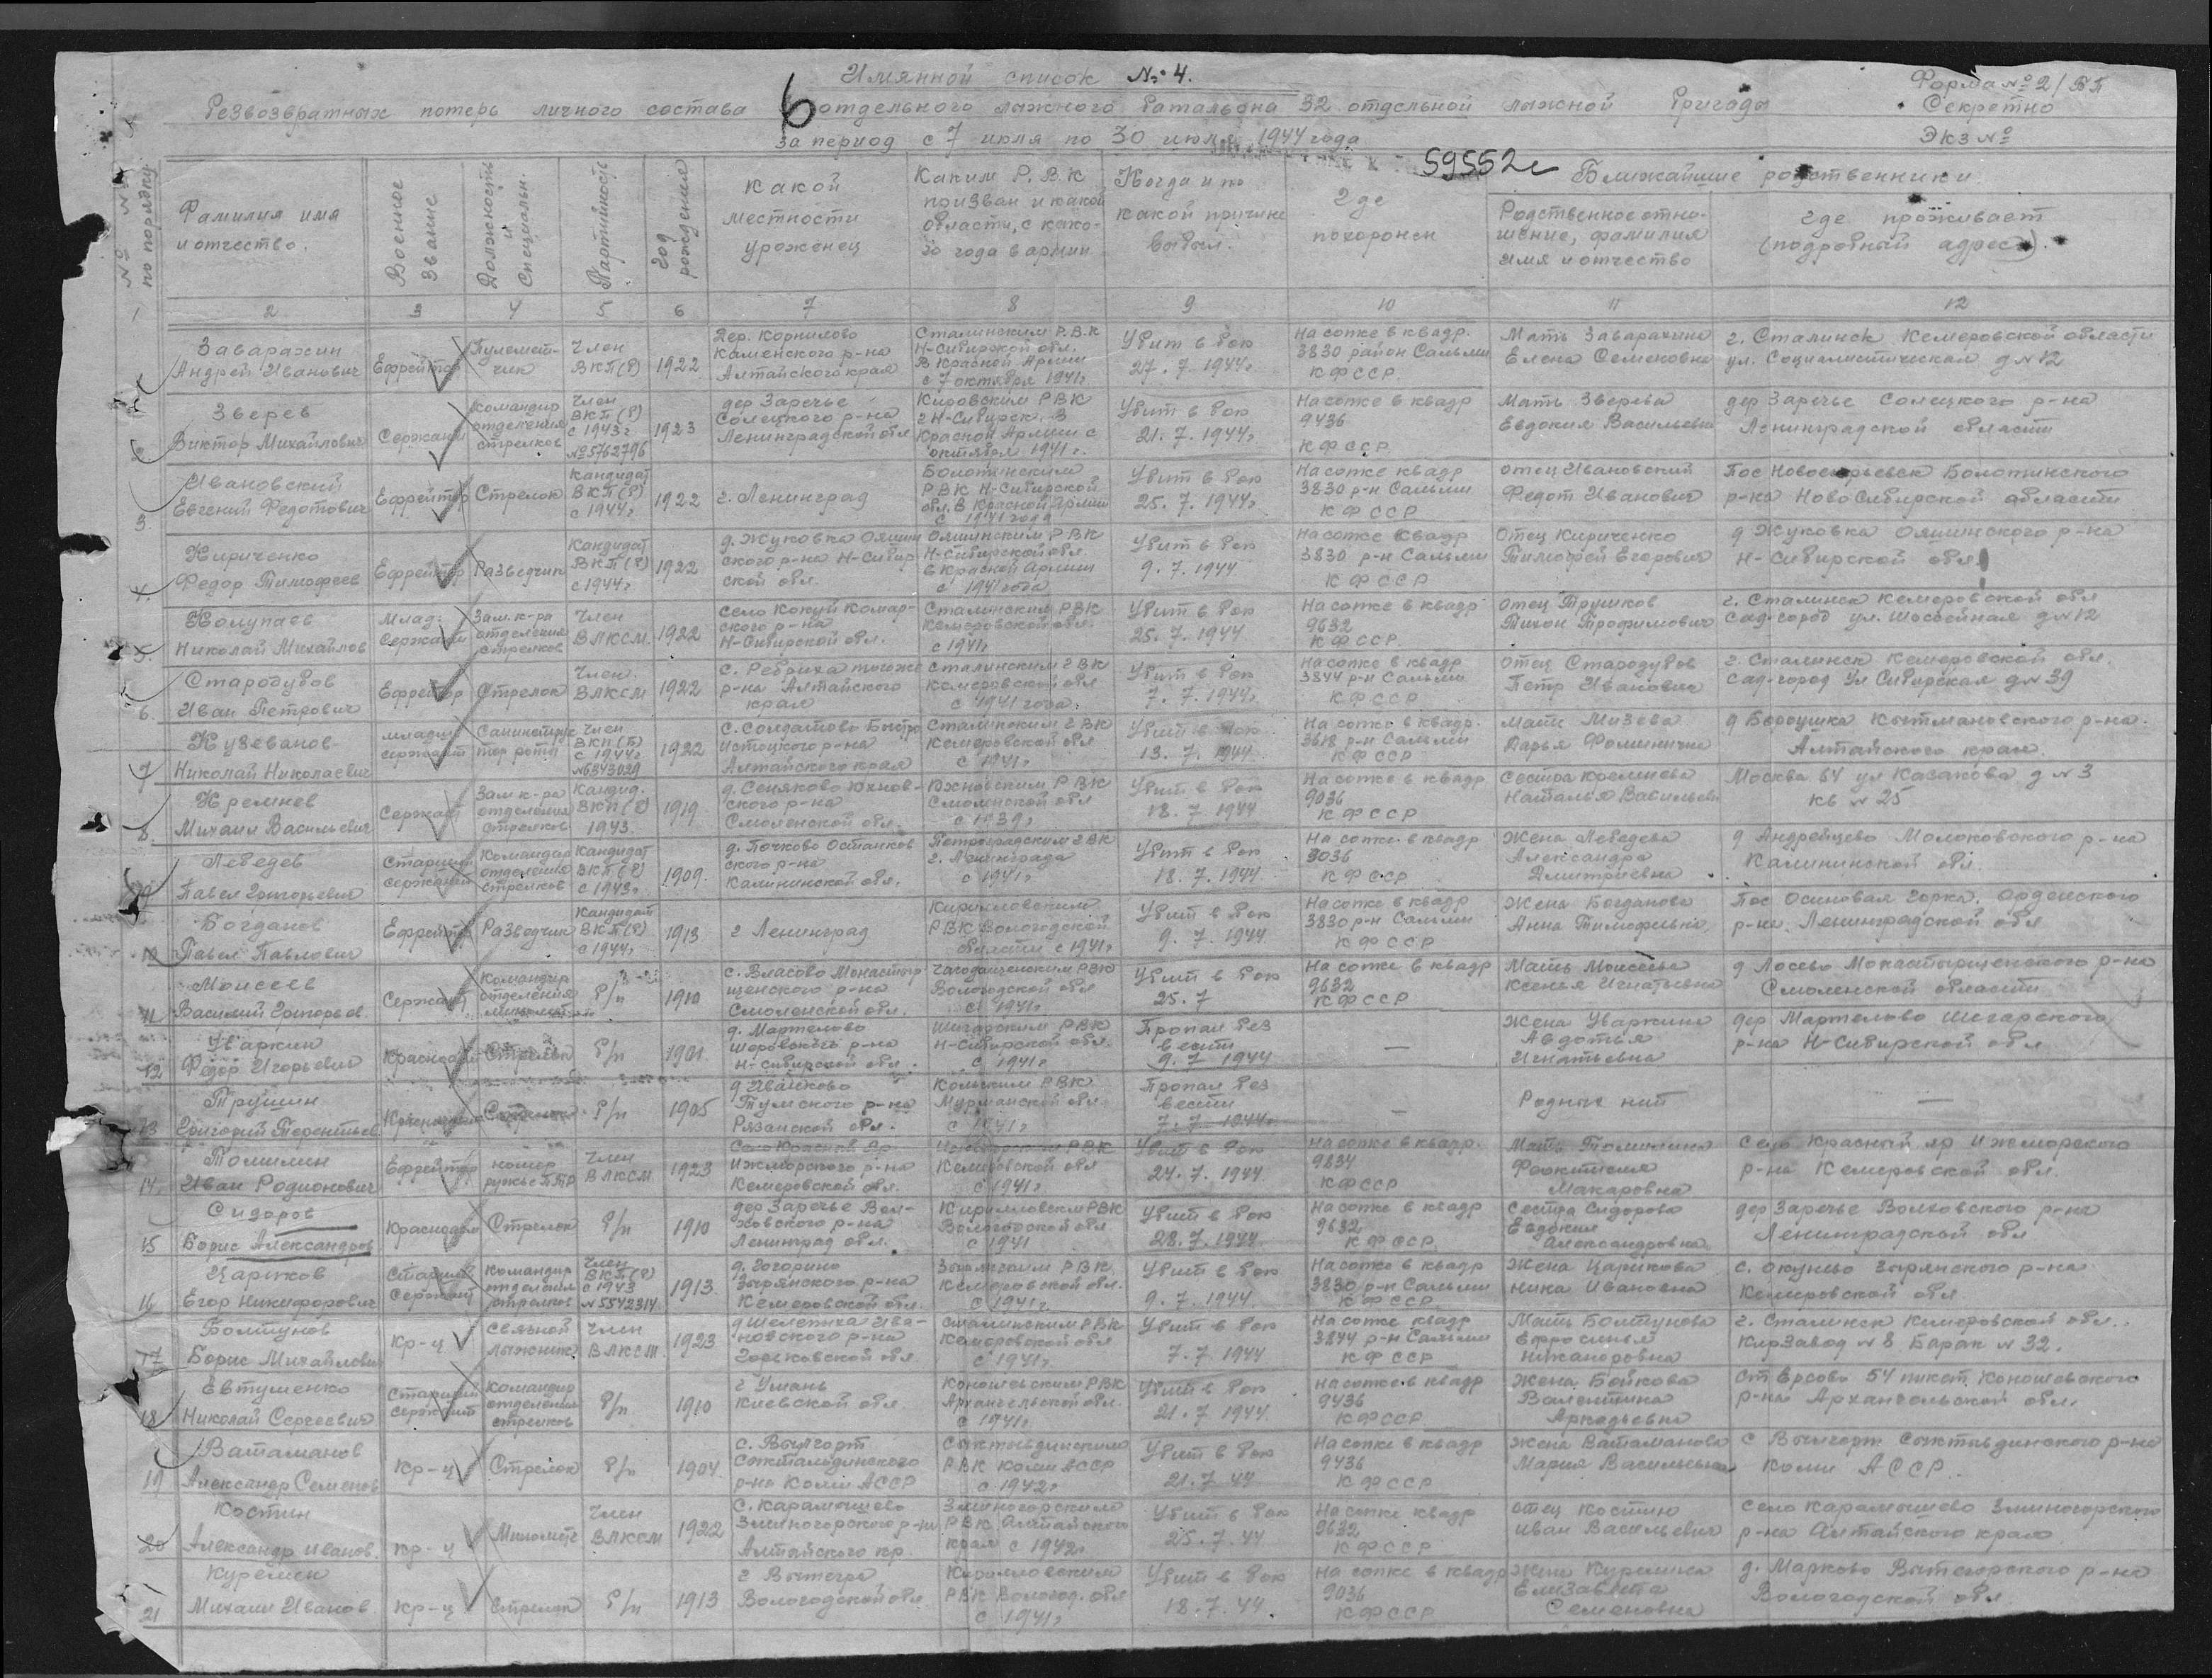 Имянной список №4.
Форма №2/БП
безвозвратных потерь личного состава 6 отдельного лыжного батальона 32 отдельной лыжной бригады
Секретно
за период с 7 июля по 30 июля 1944 года
Экз №
59552с
№ № по порядку
Фамилия имя и отчество.
Военное звание
Должность и специальн.
Партийность
Год рождения
Какой местности уроженец
Каким Р.В.К призван и какой области, с како- го года в армии
Когда и по какой причине выбыл.
Где похоронен
Ближайшие родственники
Родственное отно- шение, фамилия имя и отчество
Где проживает (подробный адрес).
1 2 3 4 5 6 7 8 9 10 11 12
Заваражин Андрей Иванович Ефрейтор Пулемет- чик Член ВКП(б) 1922 Дер. Корнилово Каменского р-на Алтайского края Сталинским Р.В.К Н-Сибирской обл. В Красной Армии с 7 октября 1941г. Убит в бою 27.7.1944г На сопке в квадр. 3830 район Сальми КФССР Мать Заваражина Елена Семеновна г. Сталинск Кемеровской области ул. Социалистическая д №12
Зверев Виктор Михайлович Сержант Командир отделения стрелков Член ВКП(б) с 1943г №5762796 1923 дер Заречье Солецкого р-на Ленинградской обл Кировским РВК г Н-Сибирск. В Красной Армии с октября 1941г. Убит в бою 21.7.1944г На сопке в квадр 9436 КФССР Мать Зверева Евдокия Васильевн дер Заречье Солецкого р-на Ленинградской области
3. Ивановский Евгений Федотович Ефрейтор Стрелок Кандидат ВКП(б) с 1944г 1922 г. Ленинград Болотнинским РВК Н-Сибирской обл. В Красной Армии с 1941 года Убит в бою 25.7.1944г На сопке квадр 3830 р-н Сальми КФССР отец Ивановский Федот Иванович Пос Болотнинского р-на Новосибирской области
4. Кириченко Федор Тимофеев Ефрейтор Разведчик Кандидат ВКП(б) с 1944г 1922 д. Жуковка Ояшин ского р-на Н-Сибир ской обл. Ояшинским РВК Н-Сибирской обл. в Красной Армии с 1941 года Убит в бою 9.7.1944 На сопке квадр 3830 р-н Сальми КФССР Отец Кириченко Тимофей Егорович д Жуковка Ояшинского р-на Н-Сибирской обл
5. Колупаев Николай Михайлов Млад. Сержант Зам.к-ра отделения стрелков Член ВЛКСМ 1922 Село Кокуй Комар- ского р-на Н-Сибирской обл. Сталинским РВК Кемеровской обл. с 1941г Убит в бою 25.7.1944 На сопке в квадр 9632 КФССР. отец Трушков Тихон Трофимович г. Сталинск Кемеровской обл Сад-город ул. Шоссейная д №12
6. Стародубов Иван Петрович Ефрейтор Стрелок Член. ВЛКСМ 1922 с. Ребриха р-на Алтайского края Сталинским ГВК Кемеровской обл с 1941 года. Убит в бою 7.7.1944г. На сопке в квадр 3844 р-н Сальми КФССР отец Стародубов Петр Иванович г. Сталинск Кемеровской обл. Сад-город Ул Сибирская д№39
7 Кузеванов Николай Николаевич младш сержант Санинструк тор роты Член ВКП(б) с 1944г №6343029 1922 с. Солдатово Быстро Истоцкого р-на Алтайского края Сталинским ГВК Кемеровской обл с 1941г Убит в бою 13.7.1944 На сопке в квадр. 3618 р-н Сальми КФССР Мать Мизева Дарья Фоминична Кытмановского р-на. Алтайского края.
8. Кремнев Михаил Васильевич Сержант Зам к-ра отделения стрелков Кандид. ВКП(б) 1943. 1919 д. Сеняково Юхнов- ского р-на Смоленской обл. Юхновским РВК Смоленской обл с 1939г Убит в бою 18.7 1944 На сопке в квадр 9036 КФССР Сестра Кремнева Наталья Васильевн Москва 64 ул Казакова д №3 кв №25
Лебедев Павел Григорьевич Старший сержант Командир отделения стрелков Кандидат ВКП(б) с 1943г 1909. д. Почково Осташков ского р-на Калининской обл. Петроградским ГВК г. Ленинграда с 1941г Убит в бою 18.7.1944 На сопке в квадр 9036 КФССР Жена Лебедева Александра Дмитриевна д Андрейцево Молоковского р-на Калининской обл
10 Богданов Павел Павлович Ефрейтор Разведчик Кандидат ВКП(б) с 1944г 1913 г Ленинград Кирилловским РВК Вологодской области с 1941г Убит в бою 9.7.1944 На сопке в квадр 3830 р-н Сальми КФССР Жена Богданова Анна Тимофеевна Пос Осиновая Горка. р-на. Ленинградской обл
11 Моисеев Василий Григорьев. Сержант Командир отделения Б/п 1910 с. Власово Монастыр- щенского р-на Смоленской обл. Чагодащенским РВК Вологодской обл с 1941г Убит в бою 25.7 На сопке в квадр 9632 КФССР Мать Моисеева Ксенья Игнатьевна д Лосево Монастырщенского р-на Смоленской области
12 Уваркин Федор Игорьевич Красноарм Стрелок Б/п 1901. д. Мартелово р-на Н-Сибирской обл. Шегарским РВК Н-Сибирской обл. с 1941г Пропал без вести 9.7 1944 — Жена Уваркина Авдотья Игнатьевна дер Мартелово Шегарского р-на Н-Сибирской обл
13 Трушин Григорий Терентьев Красноарм Стрелок Б/п 1905 д Иванково Тумского р-на Рязанской обл. Кольским РВК Мурманской обл. с 1941г Пропал без вести 7.7.1944г — Родных нет —
14. Томилин Иван Родионович Ефрейтор номер ружье ПТР Член ВЛКСМ 1923 Село Красный Яр Ижморского р-на Кемеровской обл. Ижморским РВК Кемеровской обл с 1941г Убит в бою 24.7.1944 На сопке в квадр. 9834 КФССР Мать Томилина Феоктисия Макаровна Село Красный яр Ижморского р-на Кемеровской обл.
15 Сидоров Борис Александров Красноарм Стрелок Б/п 1910 дер Заречье Вол- ховского р-на Ленинград обл. Кирилловским РВК Вологодской обл с 1941 Убит в бою 28.7.1944 На сопке в квадр 9632 КФССР. Сестра Сидорова Евдокия Александровна дер Заречье Волховского р-на Ленинградской обл
16 Цариков Егор Никифорович Старший Сержант Командир отделения стрелков Член ВКП(б) с 1943 №5542314 1913. д. Гогорино Зырянского р-на Кемеровской обл. Зырянским РВК Кемеровской обл. с 1941г. Убит в бою 9.7.1944 На сопке в квадр 3830 р-н Сальми КФССР Жена Царикова Ника Ивановна с. Окунево Зырянского р-на Кемеровской обл
17 Болтунов Борис Михайлович Кр-ц связной лыжник Член ВЛКСМ 1923 д Шелепиха Ива- новского р-на Горьковской обл. Сталинским РВК Кемеровской обл с 1941г. Убит в бою 7.7 1944 На сопке квадр 3844 р-н Сальми КФССР Мать Болтунова Ефросинья Никаноровна г. Сталинск Кемеровской обл. Кирзавод №8 Барак №32.
18 Евтушенко Николай Сергеевич Старший сержант Командир отделения стрелков Б/п 1910 г Умань Киевской обл Коношевским РВК Архангельской обл. с 1941г. Убит в бою 21.7 1944 На сопке в квадр 9436 КФССР Жена Бойкова Валентина Аркадьевна ст Ерсово 54 пикет Коношевского р-на Архангельской обл.
19 Ватаманов Александр Семенов Кр-ц Стрелок Б/п 1904. с. Вылгорт Сыктывдинского р-на Коми АССР Сыктывдинским РВК Коми АССР с 1942г Убит в бою 21.7 44 На сопке в квадр 9436 КФССР Жена Ватаманова Мария Васильевна с Вылгорт Сыктывдинского р-на Коми АССР.
20 Костин Александр Иванов. Кр-ц Минометч Член ВЛКСМ 1922 с. Карамышево Змеиногорского р-на Алтайского кр Змеиногорским РВК Алтайского края с 1942г Убит в бою 25.7.44 На сопке квадр 9632 КФССР отец Костин Иван Васильевич Село Карамышево Змеиногорского р-на Алтайского края
21 Куремин Михаил Иванов Кр-ц Стрелок Б/п 1913 г Вытегра Вологодской обл Кирилловским РВК Вологод. обл с 1941г Убит в бою 18.7.44. На сопке в квадр 9036 КФССР Жена Куремина Елизавета Семеновна д. Марково Вытегорского р-на Вологодской обл